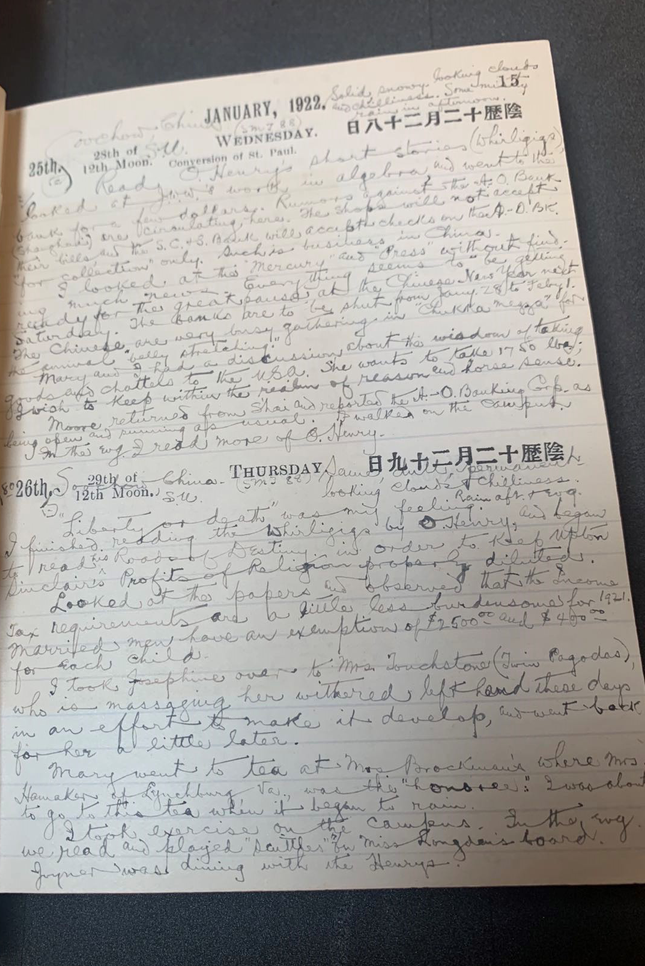 Solid, snowy looking clouds
and chilliness. Some misty
rain in afternoon.
15
JANUARY, 1922.
Soochow China (Sm 7 28)
WEDNESDAY.
陰歷十二月二十八日
25th.
28th of
12th Moon.
S.U.
Conversion of St. Paul.
Read O Henry's short stories (Whirligigs)
looked at work in algebra and went to the
bank for a few dollars. Rumors against the A.O. Bank
(Shanghai) are circulating here. The shops will not accept
their bills and the S.C.&S. Bank will accept checks on the A-O. BK.
"for collection" only. Such is business in China.
I looked at the "Mercury" and "Press" without find-
ing much "news". Everything seems to be getting
ready for the great pause at the Chinese New Year next
Saturday. The banks are to be shut from Jany. 28 to Feby 1.
The Chinese are very busy gathering in for
the annual "belly stretching".
Mary and I had a discussion about the wisdom of taking
goods and chattels to the U.S.A. She wants to take 1750 lbs;
I wish to keep within the realm of reason and horse sense.
Moore returned from Shai and reported the A-O. Banking Corp. as
being open and running as usual. I walked on the campus.
In the evg I read more of O. Henry.
26th.
29th of
12th Moon.
China.
S.U.
(Sm 7 28)
THURSDAY
陰歷十二月二十九日
Same permanent
looking clouds & chilliness.
Rain aft. & evg.
"Liberty or death" was my feeling.
I finished reading the Whirligigs by O Henry, and began
to read his Roads of Destiny in order to keep Upton
Sinclair's Profits of Religion properly diluted.
Looked at the papers and observed that the Income
Tax requirements are a little less burdensome for 1921.
Married men have an exemption of $2500 00 and $400 00
for each child.
I took Josephine over to Mrs Touchstone (Twin Pagodas),
who is massaging her withered left hand these days
in an effort to make it develop, and went back
for her a little later.
Mary went to tea at Mrs Brockman's where Mrs
Hamaker of Lynchburg Va., was the "honoree". I was about
to go to this tea when it began to rain.
I took exercise on the campus. In the evg.
we read and played "scuttles" on "Miss Longden's board.
Joyner was dining with the Henrys.